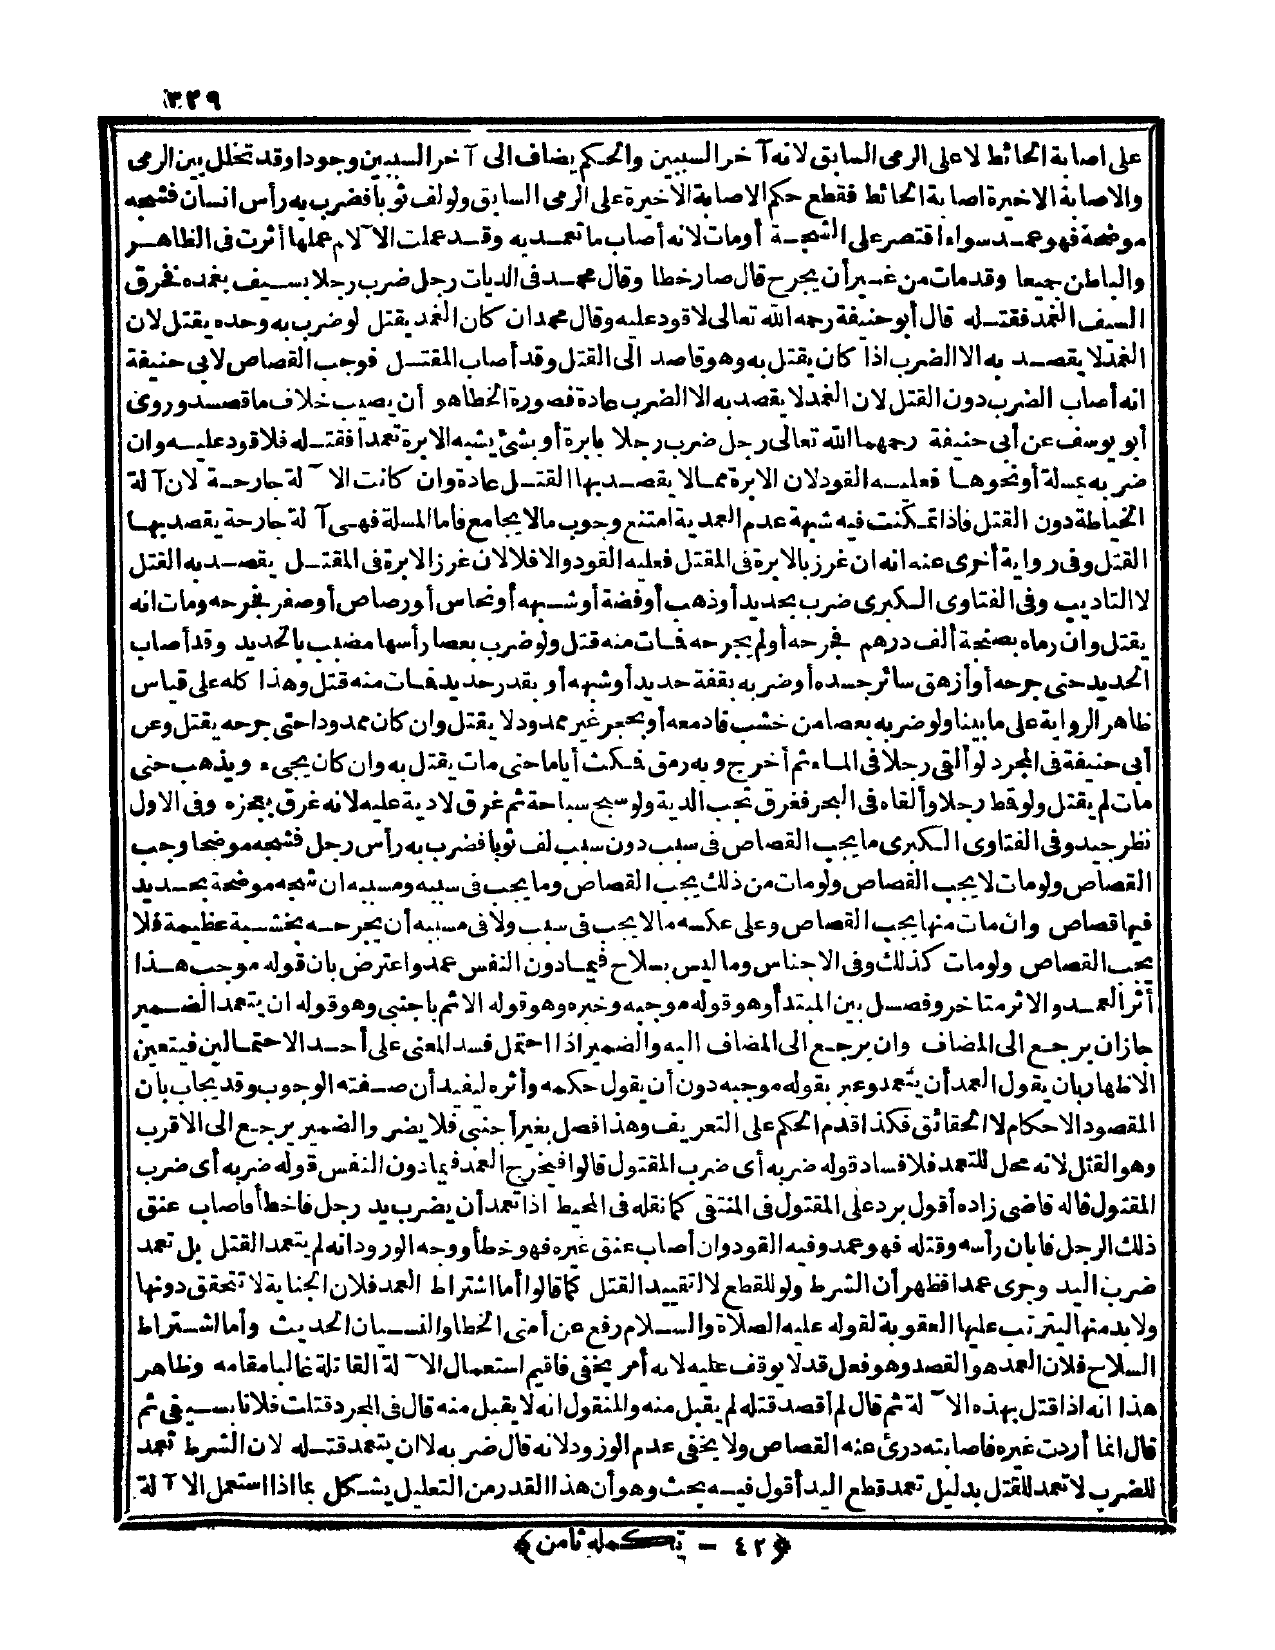 ٣٢٩
على اصابة الحائط لا على الرمى السابق لانه آخر السببين والحكم يضاف الى آخر السببين وجودا وقد تخلل بين الرمى
والاصابة الاخيرة اصابة الحائط فقطع حكم الاصابة الاخيرة على الرمى السابق ولو لف ثوبا فضرب به رأس انسان فشجه
موضحة فهو عمد سواء اقتصر على الشجة أو مات لانه أصاب ما تعمد به وقد عملت الآلام عملها أثرت فى الظاهر
والباطن جميعا وقد مات من غير أن يجرح قال صار خطا وقال محمد فى الديات رجل ضرب رجلا بسيف بغمده فخرق
السيف الغمد فقتله قال أبو حنيفة رحمه الله تعالى لا قود عليه وقال محمد ان كان الغمد يقتل لو ضرب به وحده يقتل لان
الغمد لا يقصد به الا الضرب اذا كان يقتل به وهو قاصد الى القتل وقد أصاب المقتل فوجب القصاص لابى حنيفة
انه أصاب الضرب دون القتل لان الغمد لا يقصد به الا الضرب عادة فصورة الخطا هو أن يصيب خلاف ما قصد وروى
أبو يوسف عن أبى حنيفة رحمهما الله تعالى رجل ضرب رجلا بابرة أو بشئ يشبه الابرة تعمدا فقتله فلا قود عليه وان
ضربه بمسلة أو نحوها فعليه القود لان الابرة مما لا يقصد بها القتل عادة وان كانت الآلة جارحة لان آلة
الخياطة دون القتل فاذا تمكنت فيه شبهة عدم العمدية امتنع وجوب مالا يجامع فاما المسلة فهى آلة جارحة يقصد بها
القتل وفى رواية أخرى عنه انه ان غرز بالابرة فى المقتل فعليه القود والا فلا لان غرز الابرة فى المقتل يقصد به القتل
لا التاديب وفى الفتاوى الكبرى ضرب بحديد أو ذهب أو فضة أو شبه أو نحاس أو رصاص أو صفر فجرحه ومات انه
يقتل وان رماه بصنجة ألف درهم فجرحه أو لم يجرحه فمات منه قتل ولو ضرب بعصا رأسها مضبب بالحديد وقد أصاب
الحديد حتى جرحه أو أزهق سائر جسده أو ضربه بقفة حديد أو شبهه أو بقدر حديد فمات منه قتل وهذا كله على قياس
ظاهر الرواية على ما بينا ولو ضربه بعصا من خشب فادمعه أو بحجر غير ممدود لا يقتل وان كان ممدودا حتى جرحه يقتل وعن
أبى حنيفة فى المجرد لو ألقى رجلا فى الماء ثم أخرج وبه رمق فمكث أياما حتى مات يقتل به وان كان يجىء ويذهب حتى
مات لم يقتل ولو قط رجلا وألقاه فى البحر فغرق تجب الدية ولو سبح سباحة ثم غرق لا دية عليه لانه غرق بعجزه وفى الاول
نظر جيد وفى الفتاوى الكبرى ما يجب القصاص فى سبب دون سبب لف ثوبا فضرب به رأس رجل فشجه موضحا وجب
القصاص ولو مات لا يجب القصاص ولو مات من ذلك يجب القصاص وما يجب فى سببه ومسببه ان شجه موضحة بحديد
فيها قصاص وان مات منها يجب القصاص وعلى عكسه ما لا يجب فى سبب ولا فى مسببه أن يجرحه بخشبة عظيمة فلا
يجب القصاص ولو مات كذلك وفى الاجناس وما ليس بسلاح فيما دون النفس عمد واعترض بان قوله موجب هذا
أثر العمد والاثر متاخر وفصل بين المبتدأ وهو قوله موجبه وخبره وهو قوله الاثم باجنبى وهو قوله ان يتعمد الضمير
جاز ان يرجع الى المضاف وان يرجع الى المضاف اليه والضمير اذا احتمل فسد المعنى على أحد الاحتمالين فيتعين
الاظهار بان يقول العمد أن يتعمد وعبر بقوله موجبه دون أن يقول حكمه وأثره ليفيد أن صفته الوجوب وقد يجاب بان
المقصود الاحكام لا الحقائق فكذا قدم الحكم على التعريف وهذا فصل بغير أجنبى فلا يضر والضمير يرجع الى الاقرب
وهو القتل لانه محل للتعمد فلا فساد قوله ضربه أى ضرب المقتول قالوا فيخرج العمد فيما دون النفس قوله ضربه أى ضرب
المقتول قاله قاضى زاده أقول يرد على المقتول فى المنتقى كما نقله فى المحيط اذا تعمد أن يضرب يد رجل فاخطأ فاصاب عنق
ذلك الرجل فابان رأسه وقتله فهو عمد وفيه القود وان أصاب عنق غيره فهو خطأ ووجه الورود انه لم يتعمد القتل بل تعمد
ضرب اليد وجرى عمدا فظهر أن الشرط ولو للقطع لا لتقييد القتل كما قالوا أما اشتراط العمد فلان الجناية لا تتحقق دونها
ولا بد منها ليترتب عليها العقوبة لقوله عليه الصلاة والسلام رفع عن أمتى الخطا والنسيان الحديث وأما اشتراط
السلاح فلان العمد هو القصد وهو فعل قد لا يوقف عليه لانه أمر يخفى فاقيم استعمال الآلة القاتلة غالبا مقامه وظاهر
هذا انه اذا قتل بهذه الآلة ثم قال لم أقصد قتله لم يقبل منه والمنقول انه لا يقبل منه قال فى المجرد قتلت فلانا بسيفى ثم
قال انما أردت غيره فاصابته درئ عنه القصاص ولا يخفى عدم الورود لانه قال ضربه لا ان يتعمد قتله لان الشرط تعمد
للضرب لا تعمد للقتل بدليل تعمد قطع اليد أقول فيه بحث وهو أن هذا القدر من التعليل يشكل بما اذا استعمل الآلة
﴿٤٢ - تكمله ثامن﴾